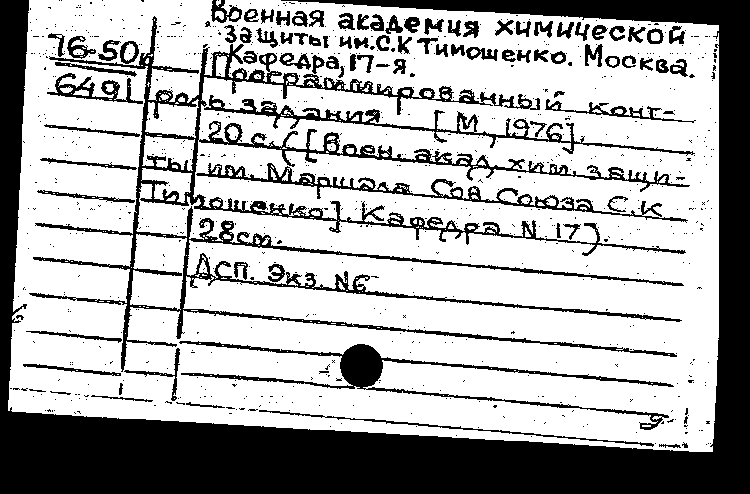 Военная академия химической
защиты им. С.К Тимошенко. Москва.
76-50к Кафедра, 17-я.
6491 Программированный конт-
роль задания [М., 1976].
20 с. ([Воен. акад. хим. защи-
ты им. Маршала Сов Союза С.К
Тимошенко]. Кафедра N 17).
28см.
ДСП. Экз. N6